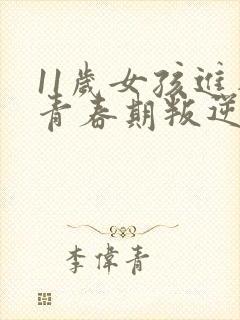 11歲女孩進
青春期叛逆
李偉青